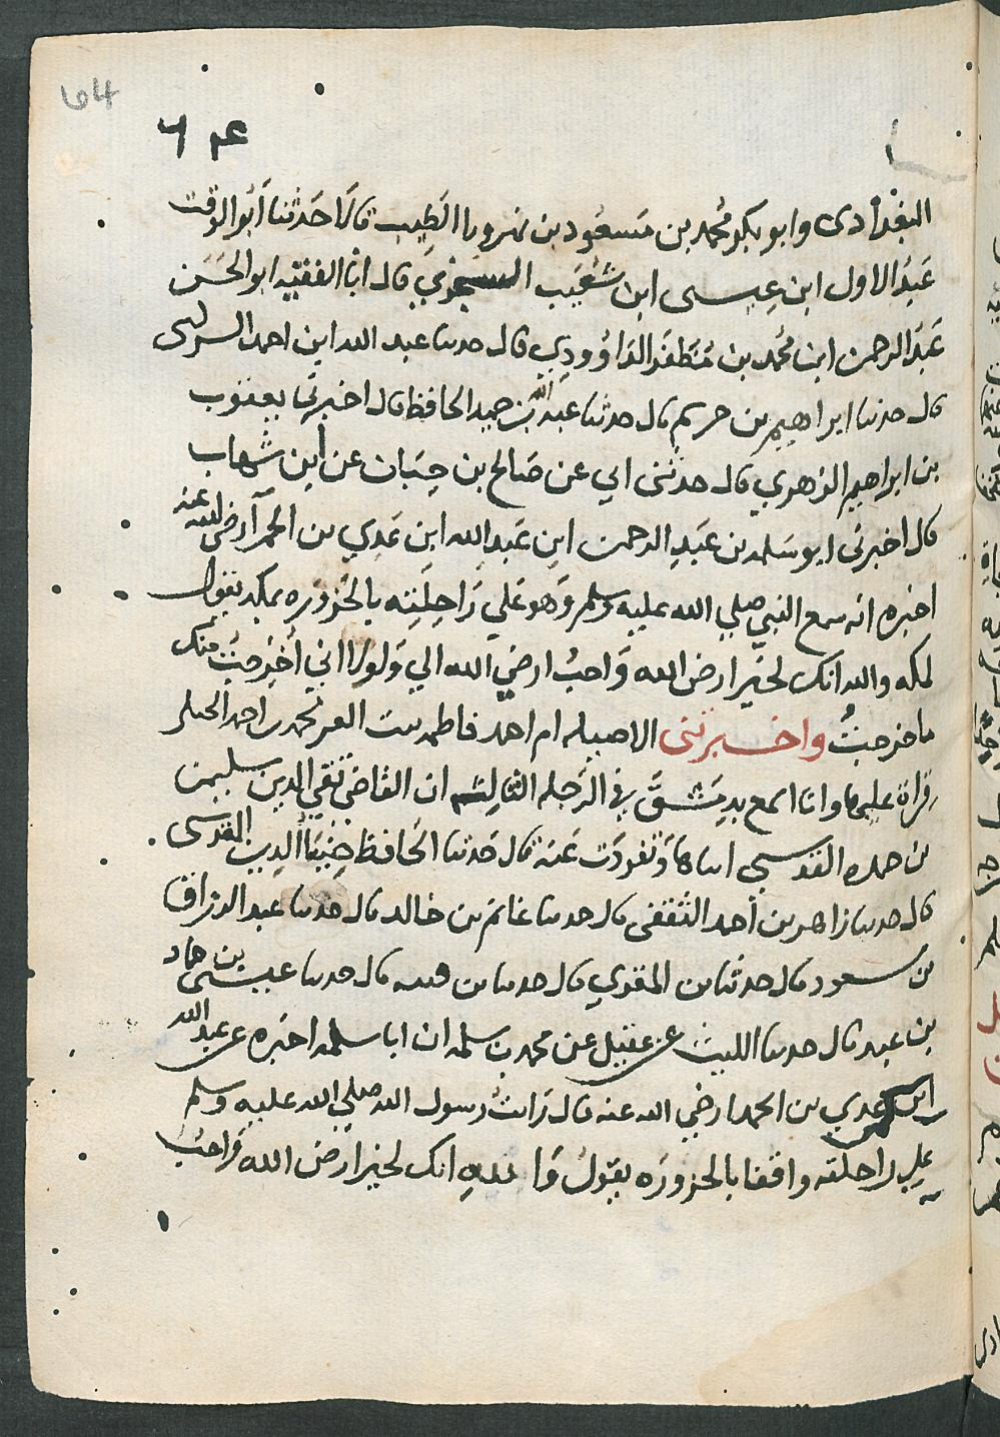 64
٦٤
البغدادى وابو بكر محمد بن مسعود بن بهروبا الطيب قالا حدثنا ابو الوقت
عبد الاول ابن عيسى ابن شعيب السجزي قال انا الفقيه ابو الحسن
عبد الرحمن ابن محمد بن مظفر الداوودي قال حدثنا عبد الله ابن احمد السرخسى
قال حدثنا ابراهيم بن خريم قال حدثنا عبد الله بن حميد الحافظ قال اخبرني يعقوب
بن ابراهيم الزهري قال حدثنى ابي عن صالح بن حبان عن ابن شهاب
قال اخبرنى ابو سلمه بن عبد الرحمن ابن عبد الله ابن عدي بن الحمرآ رضى الله عنه
اخبره انه سمع النبي صلي الله عليه وسلم وهو علي راحلته بالحزوره بمكه يقول
لمكه والله انك لخير ارض الله واحب ارض الله الي ولولا اني اخرجت منك
ما خرجت واخبرتنى الاصيله ام احمد فاطمه بنت العز محمد بن احمد الحنبلى
قراة عليها وانا اسمع بدمشق في الرحله الثالثه ان القاضي تقي الدين سليمن
بن حمزه القدسي انباها وتفردت عنه قال حدثنا الحافظ ضيا الدين المقدسى
قال حدثنا زاهر بن احمد الثقفى قال حدثنا غانم بن خالد قال حدثنا عبد الرزاق
بن سعود قال حدثنا بن المقري قال حدثنا بن قتيبه قال حدثنا عيسى بن حماد
بن عبد قال حدثنا الليث عن عقيل عن محمد بن سلمه ان ابا سلمه اخبره عن عبد الله
ابن عدي بن الحمرا رضي الله عنه قال رايت رسول الله صلي الله عليه وسلم
علي راحلته واقفا بالحزوره يقول والله انك لخير ارض الله واحب